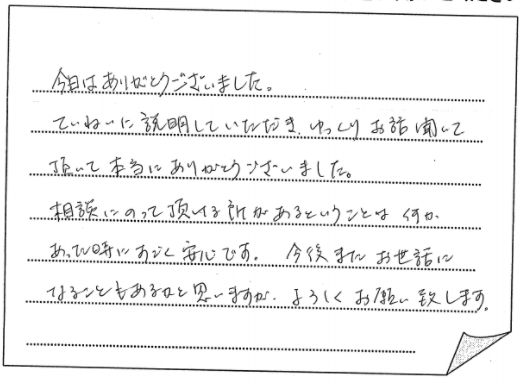 今日はありがとうございました。
ていねいに説明していただき、ゆっくりお話聞いて
頂いて本当にありがとうございました。
相談にのって頂ける所があるということは何か
あった時にすごく安心です。今後またお世話に
なることもあるかと思いますが、よろしくお願い致します。